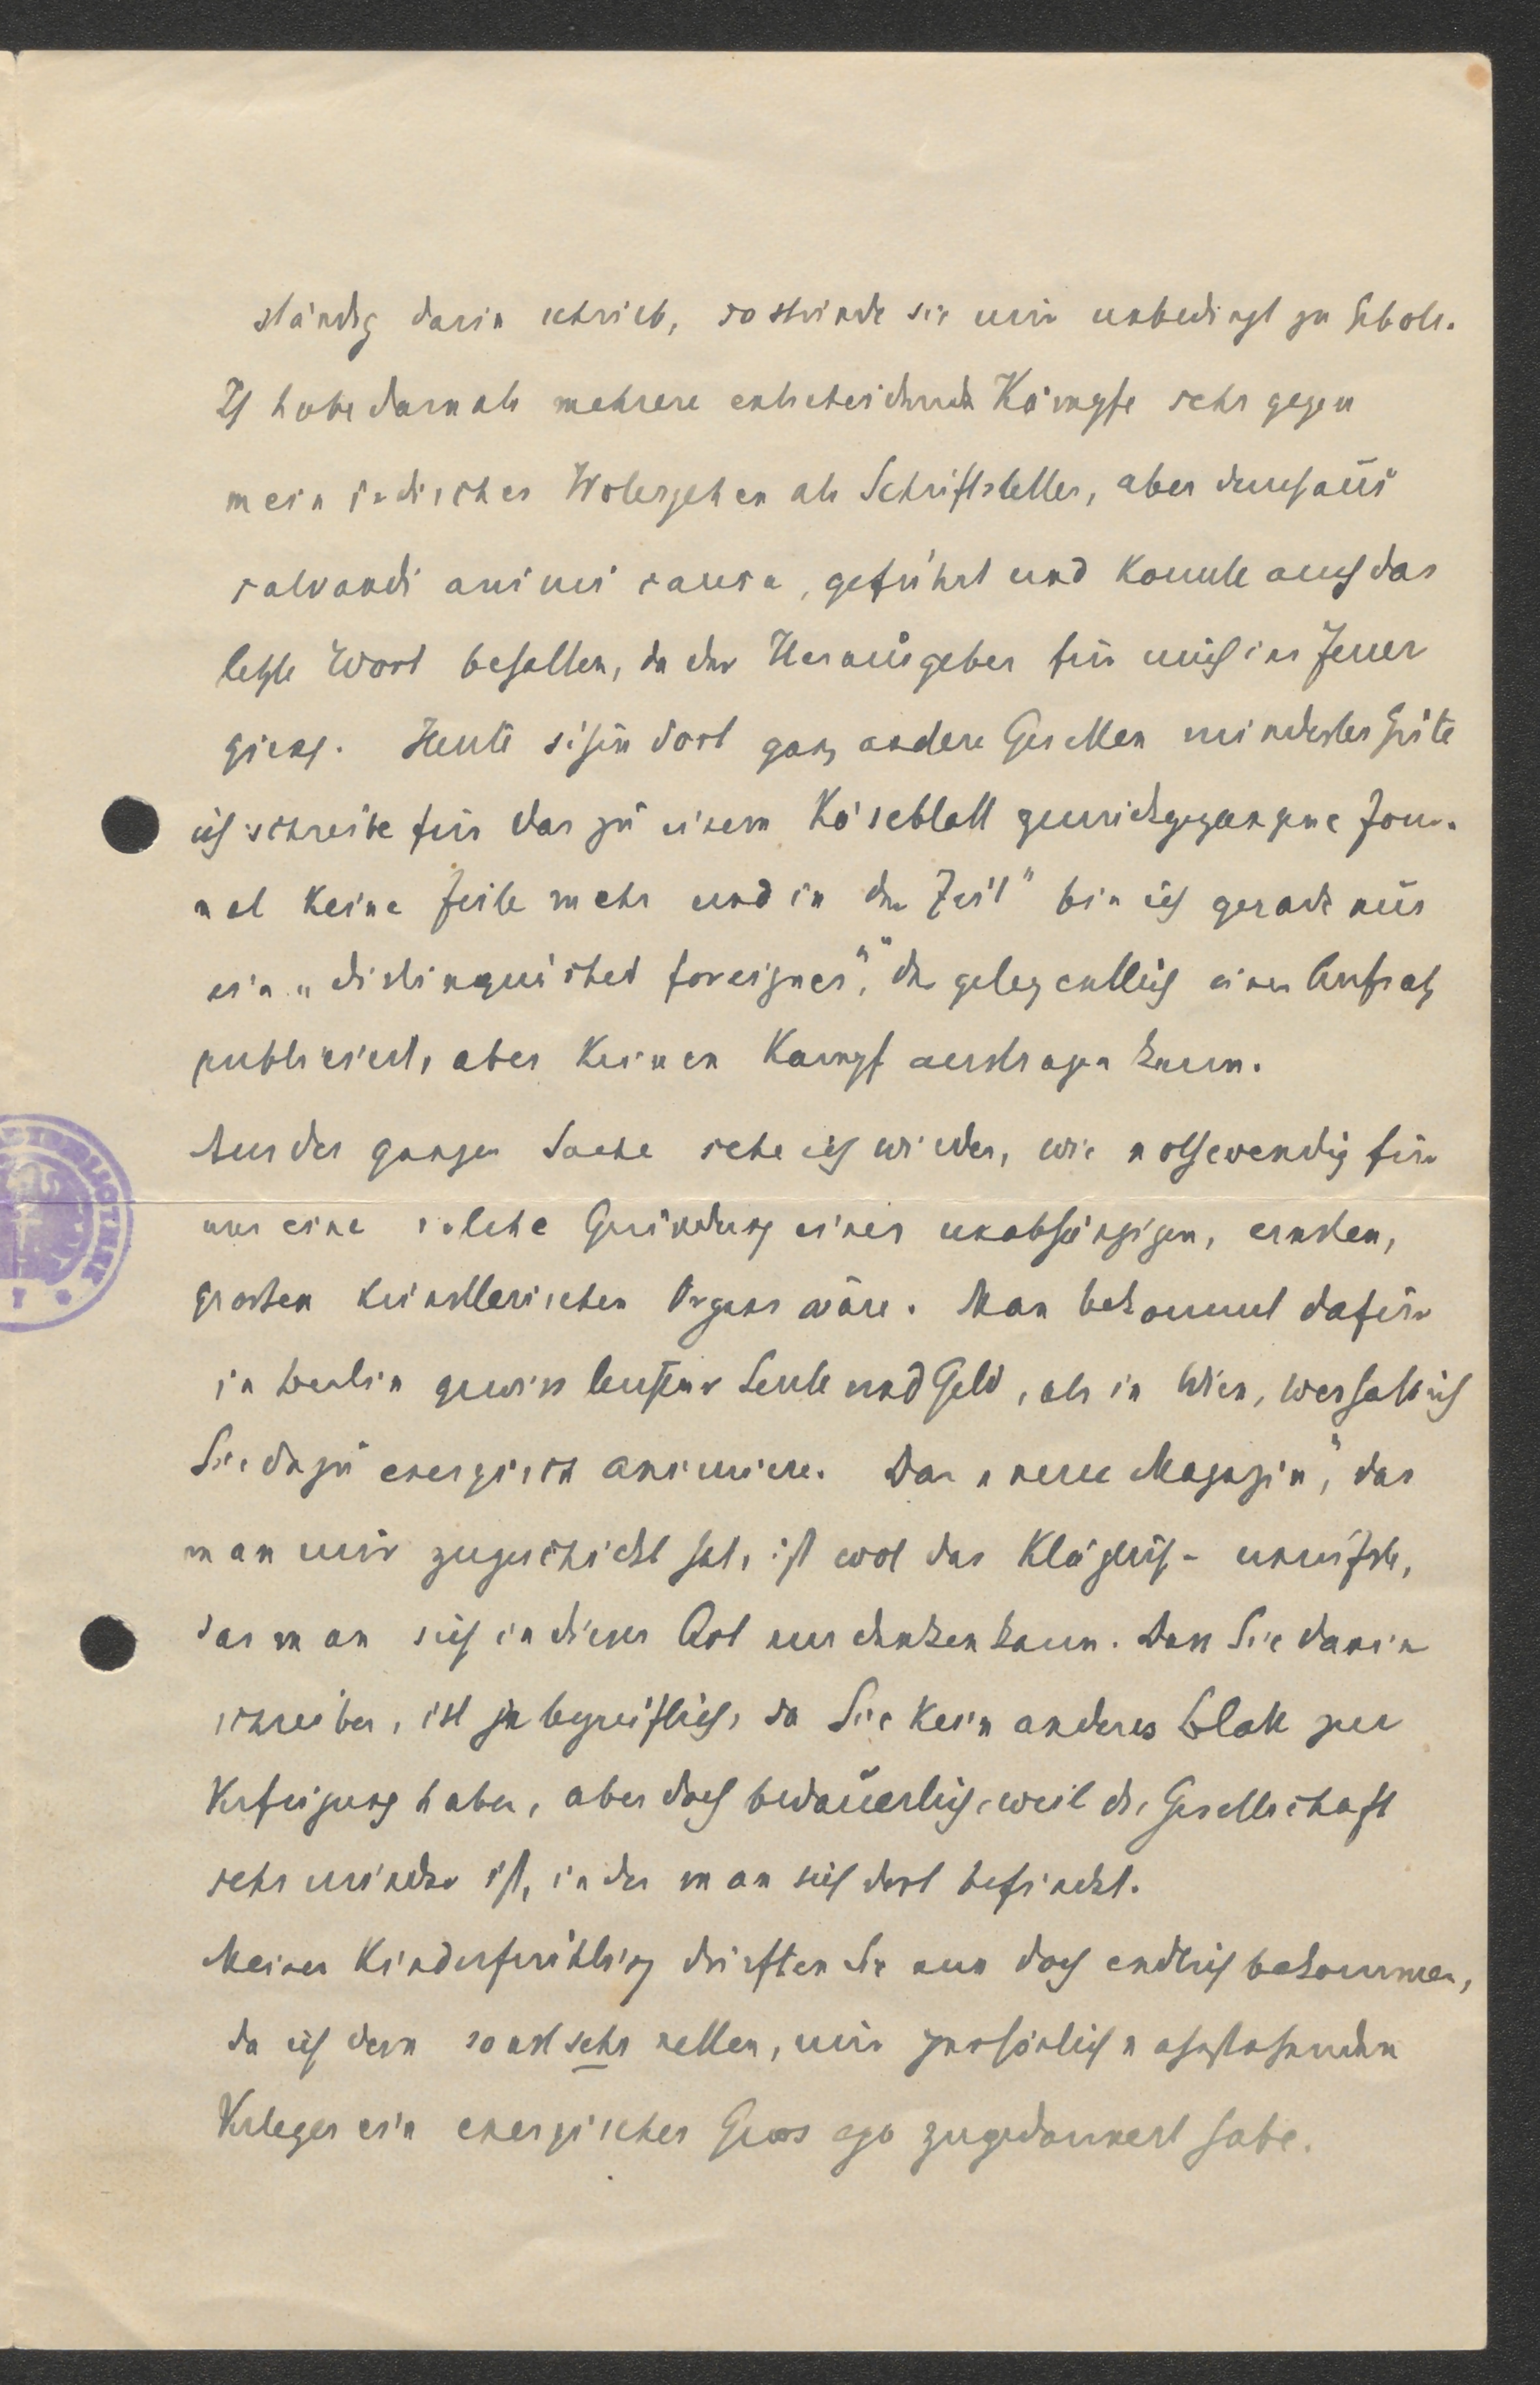 ständig darin schrieb, so stünde sie mir unbedingt zu Gebote.
Ich habe damals mehrere entscheidende Kämpfe sehr gegen
mein irdisches Wolergehen als Schriftsteller, aber durchaus
salvandi animi causa, geführt und konnte auch das
letzte Wort behalten, da der Herausgeber für mich ins Feuer
gieng. Heute sitzen dort ganz andere Gesellen minderster Güte
ich schreibe für das zu einem Käseblatt zurückgegangne Jour-
nal keine Zeile mehr und in der Zeit" bin ich gerade nur
ein „distinguished foreigner", der gelegentlich einen Aufsatz
publiciert, aber keinen Kampf austragen kann.
Aus der ganzen Sache sehe ich wieder, wie nothwendig für
uns eine solche Gründung eines unabhängigen, ernsten,
grossen künstlerischen Organs wäre. Man bekommt dafür
in Berlin gewiss leichter Leute und Geld, als in Wien, weshalb ich
Sie dazu energisch animiere. Das „neue Magazin", das
man mir zugeschickt hat, ist wol das Kläglich-unreifste,
das man sich in dieser Art nur denken kann. Dass Sie darin
schreiben, ist ja begreiflich, da Sie kein anderes Blatt zur
Verfügung haben, aber doch bedauerlich, weil die Gesellschaft
sehr minder ist, in der man sich dort befindet.
Meinen Kinderfrühling dürften Sie nun doch endlich bekommen,
da ich dem sonst sehr netten, mir persönlich nahestehenden
Verleger ein energisches Quos ego zugedonnert habe.